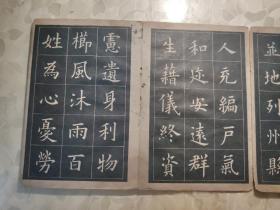 並地列州縣
人充編戶氣
和迩安遠群
生藉儀終資
慮遺身利物
櫛風沐雨百
姓為心憂勞